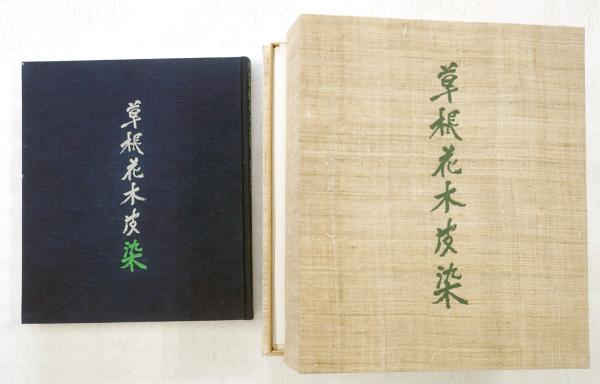 草根花木皮染
草根花木皮染